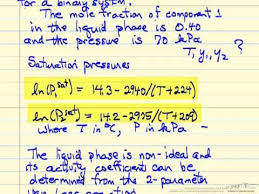 for a binary system.
The mole fraction of component 1
in the liquid phase is 0.40
and the pressure is 70 kPa
T, y₁, y₂ ?
Saturation pressures
ln(P₁ˢᵃᵗ) = 14.3 - 2940/(T+224)
ln(P₂ˢᵃᵗ) = 14.2 - 2925/(T+209)
where T in °C, P in kPa
The liquid phase is non-ideal and
its activity coefficient can be
determined from the 2-parameter